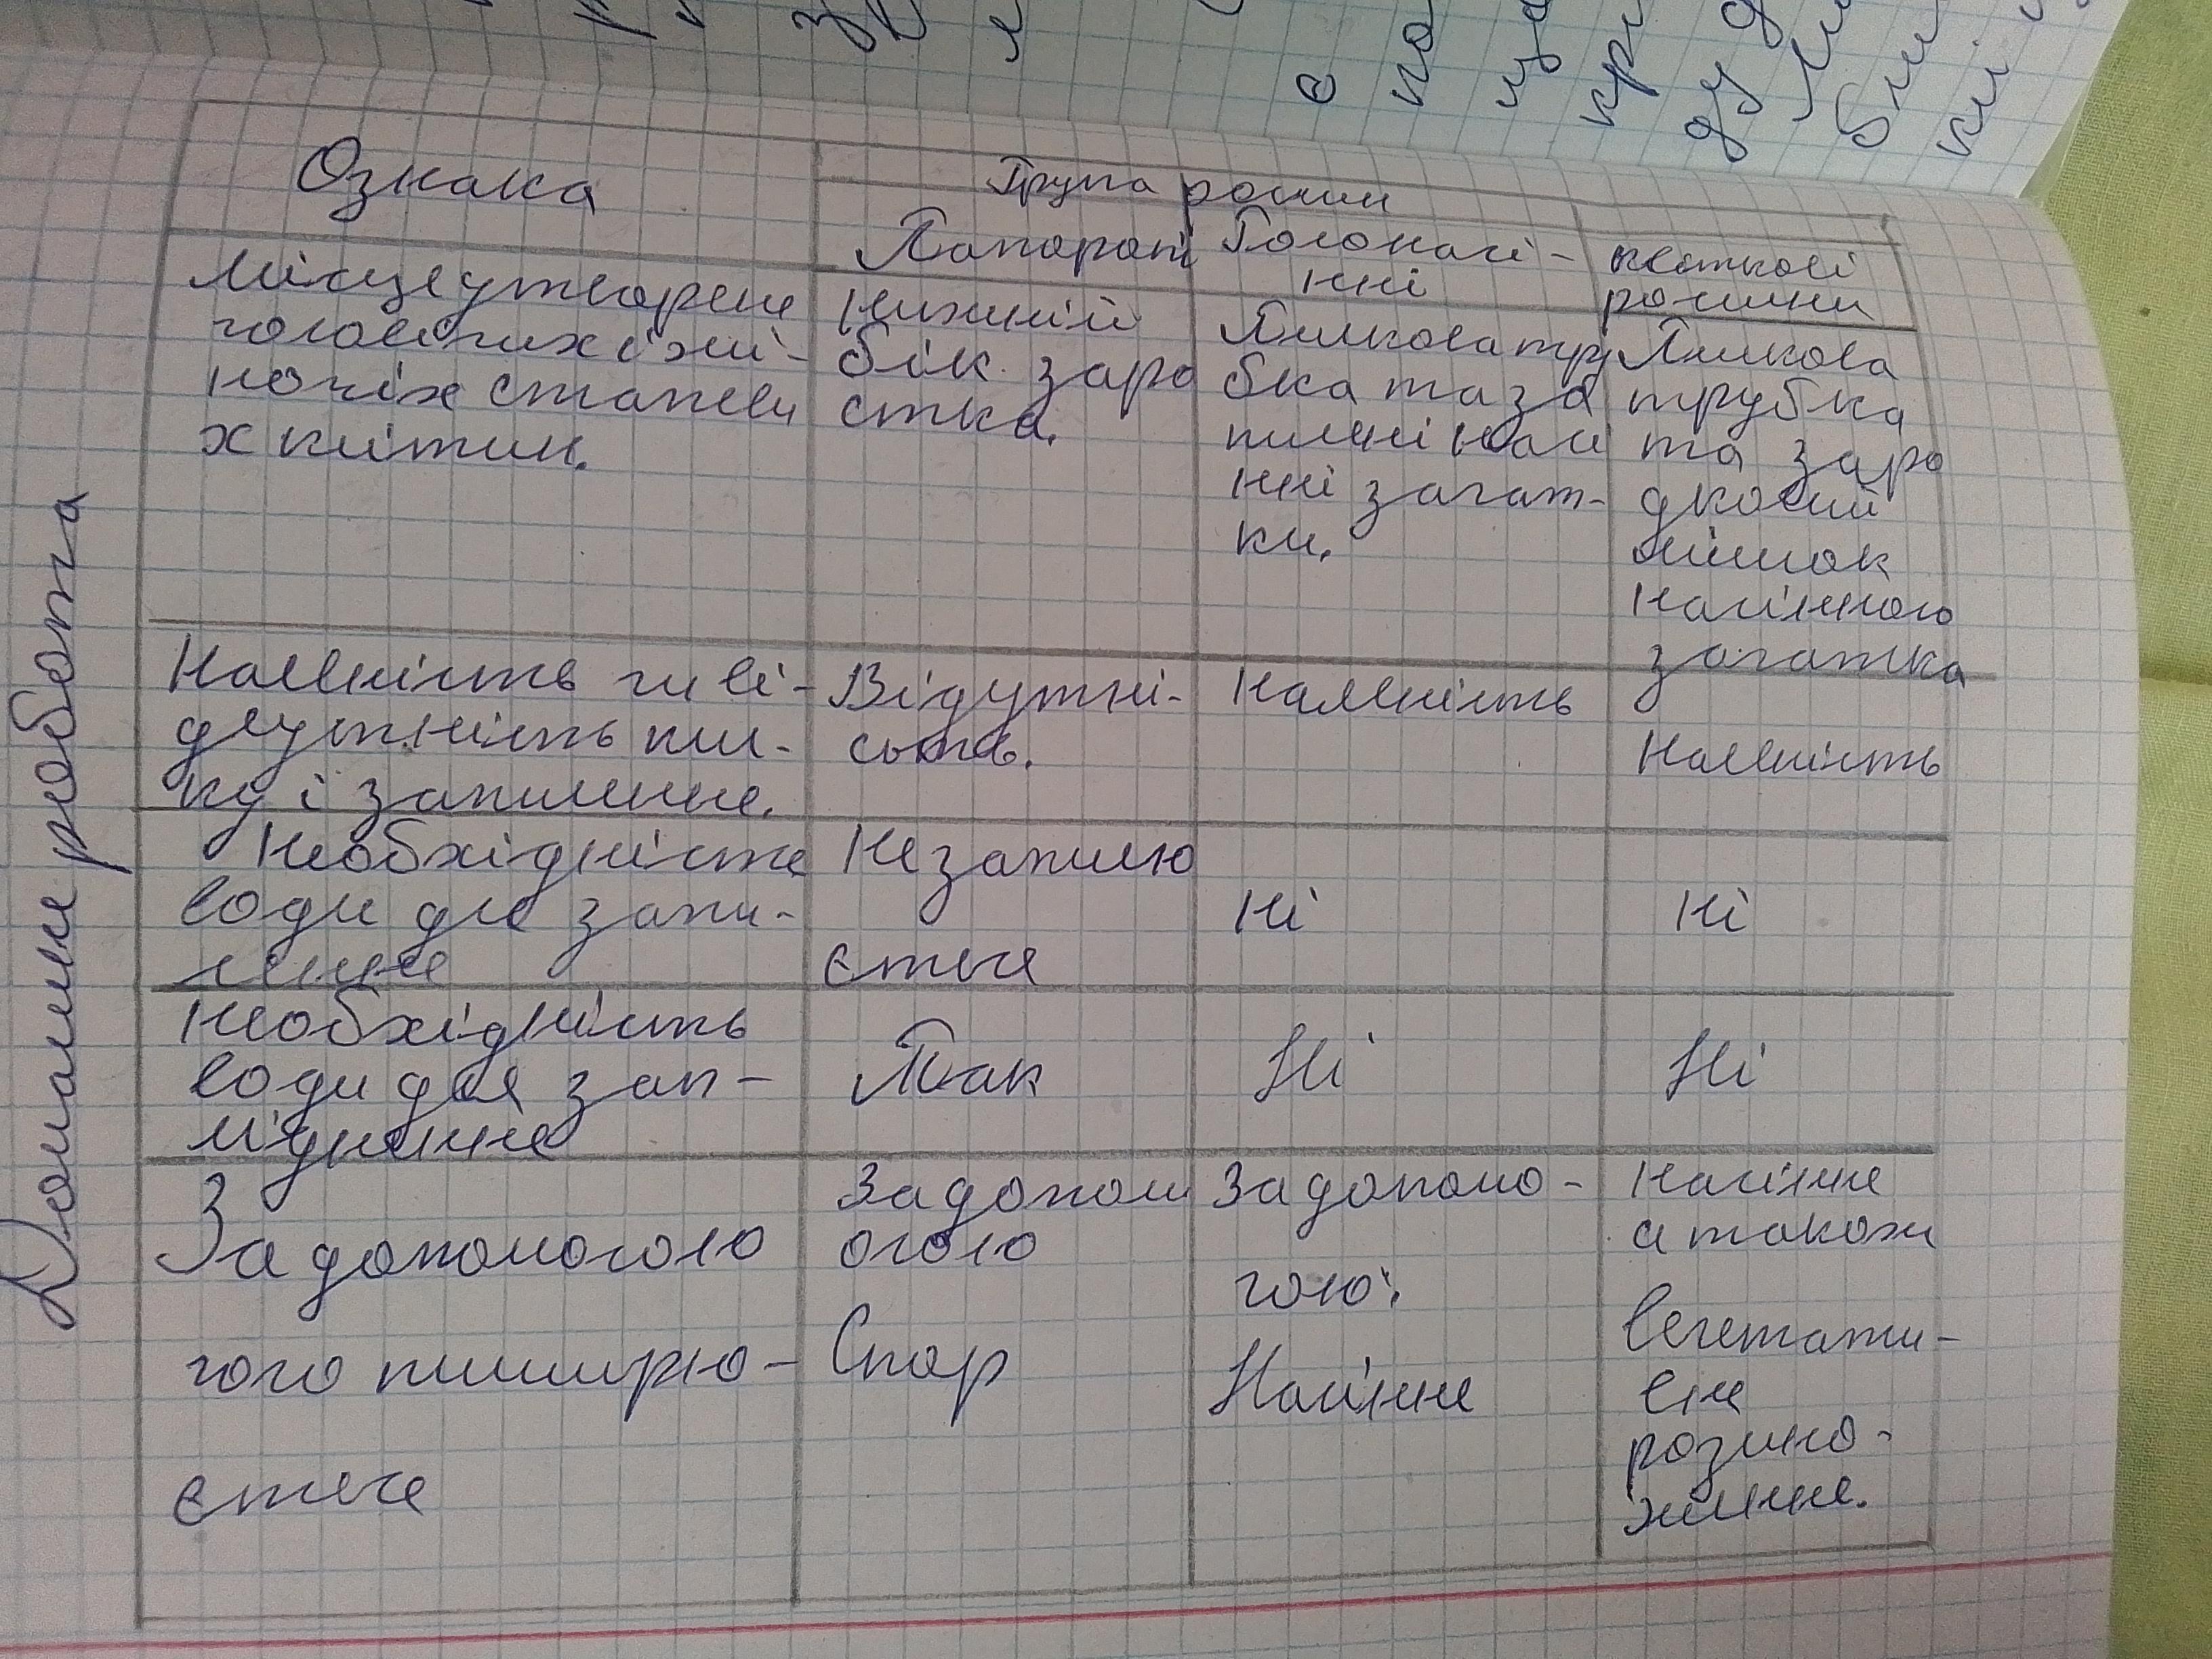 Домашня робота
Ознака
Група рослин
Папороті
Голонасі-
нні
квіткові
рослини
Місце утворення
чоловічих і жі-
ночіх статеви
х клітин.
Нижній
бік заро
стка.
Пилкова тру
бка та за
пилені насі
нні зачат-
ки.
Пилкова
трубка
та заро
дковий
мішок
насінного
зачатка
Наявність чи ві-
дсутність пил-
ку і запилення.
Відутні-
сьть.
Наявність
Наявність
Необхідність
води для запи-
лення
Незапилю
ється
Ні
Ні
Необхідність
води для зап-
лі́днення
Так
Ні
Ні
За допомогою
чого поширю-
ється
За допом
огою
Спор
За допомо-
гою:
Насіння
Насіння
а також
вегетати-
вне
розмно-
ження.